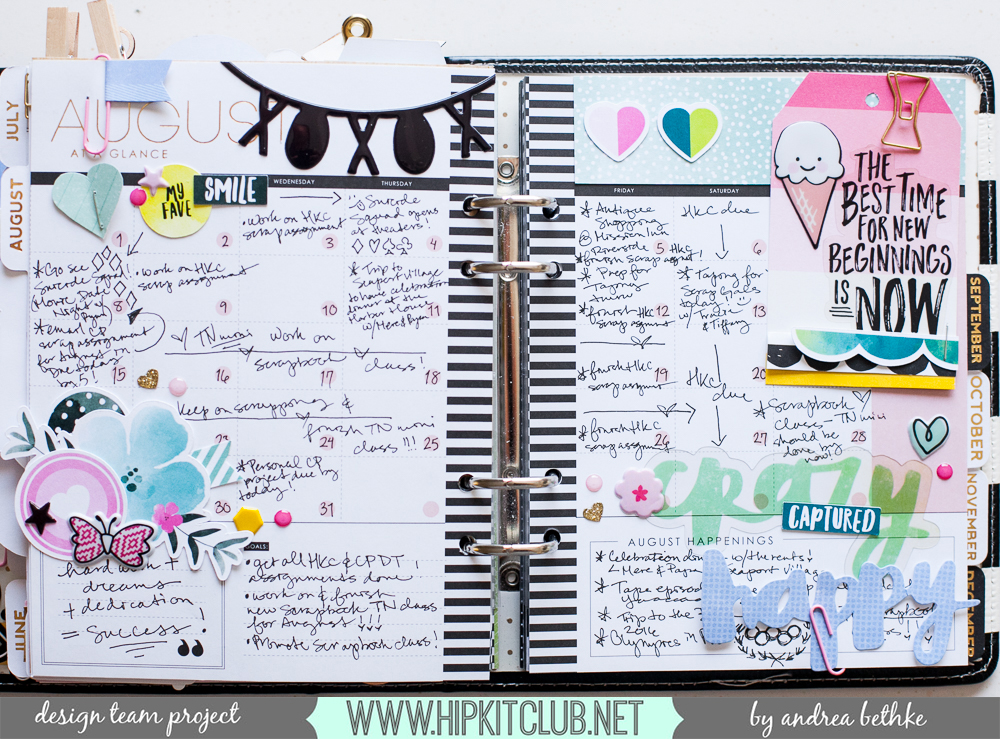 JULY
AUGUST
JUNE
AUGUST
AT A GLANCE
MY
FAVE
SMILE
WEDNESDAY
THURSDAY
1
2
•work on HKC
scrap assignment
3
Squad opens
at theaters!
4
*Go see
squad!
Date
Night w/
Ryan
8
•work on HKC
scrap assignment
9
10
*Trip to
Seaport Village
to have celebration
dinner at the
Harbor House
w/Mere & Ryan
11
*email CP
scrap assignment
for August TN
Due today
by 5!
15
TN mini work on
scrapbook class!
16
17
18
Keep on scrapping &
finish TN mini
class!!!
23
24
25
*Personal CP
project due by
today!
30
31
hard work +
dreams
+ dedication
= success!
GOALS:
•get all HKC & CPDT
assignments done
•work on & finish
new Scrapbook TN class
for August!!!
•Promote scrapbook class!
FRIDAY
SATURDAY
*Antique
Shopping
@ Mission Inn
Riverside
*finish scrap assignment
5
HKC due
6
*Prep for
*finish HKC
scrap assignment
12
for
Scrap Girls
today!!
& Tiffany
13
*finish HKC
scrap assignment
19
HKC
due
20
*finish HKC
scrap assignment
26
27
*Scrapbook
Class - TN mini
should be
done by
now!
28
THE
BEST TIME
FOR NEW
BEGINNINGS
IS NOW
crazy
CAPTURED
AUGUST HAPPENINGS
*Celebration w/the rents!
Mere & Papa Seaport Village
*Tape
*Trip to the
scrapbook
*Olympics
2016
happy
SEPTEMBER
OCTOBER
NOVEMBER
DECEMBER
design team project
WWW.HIPKITCLUB.NET
by andrea bethke